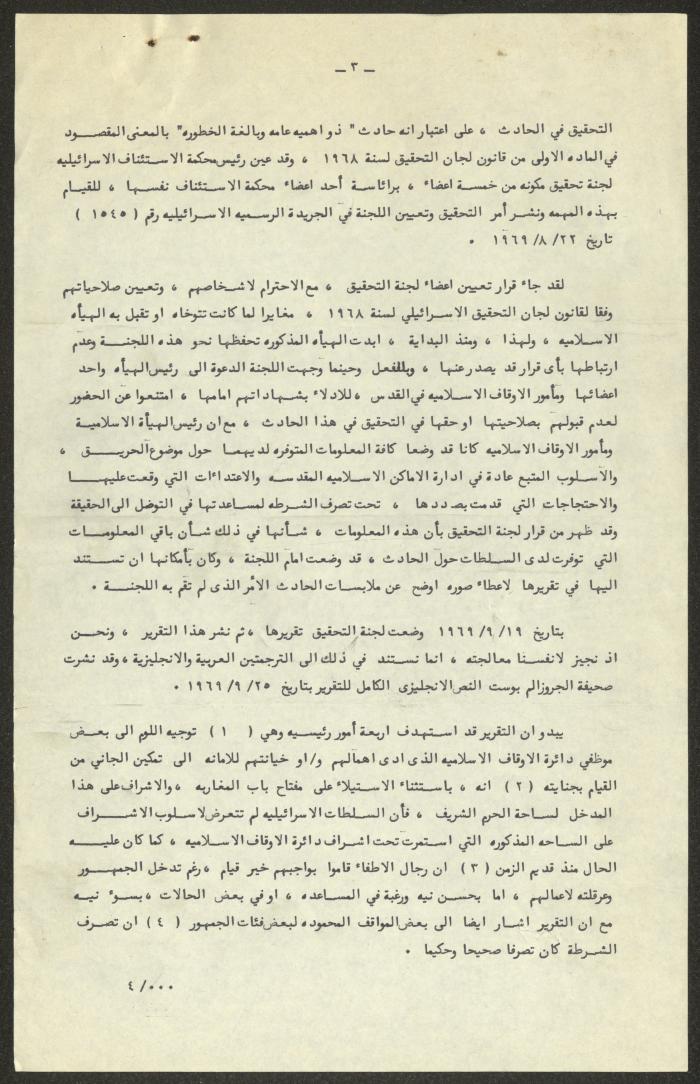 — ٣ —
التحقيق في الحادث ، على اعتبار انه حادث " ذو اهميه عامه وبالغة الخطوره" بالمعنى المقصود
في الماده الاولى من قانون لجان التحقيق لسنة ١٩٦٨ ، وقد عين رئيس محكمة الاستئناف الاسرائيليه
لجنة تحقيق مكونه من خمسة اعضاء ، برائاسة أحد اعضاء محكمة الاستئناف نفسها ، للقيام
بهذه المهمه ونشر أمر التحقيق وتعيين اللجنة في الجريدة الرسميه الاسرائيليه رقم ( ١٥٤٥ )
تاريخ ٢٢/ ٨/ ١٩٦٩ .
لقد جاء قرار تعيين اعضاء لجنة التحقيق ، مع الاحترام لاشخاصهم ، وتعيين صلاحياتهم
وفقا لقانون لجان التحقيق الاسرائيلي لسنة ١٩٦٨ ، مغايرا لما كانت تتوخاه او تقبل به الهيأه
الاسلاميه ، ولهذا ، ومنذ البداية ، ابدت الهيأه المذكوره تحفظها نحو هذه اللجنة وعدم
ارتباطها بأى قرار قد يصدر عنها ، وبالفعل وحينما وجهت اللجنة الدعوة الى رئيس الهيأه واحد
اعضائها ومأمور الاوقاف الاسلاميه في القدس ، للادلاء بشهاداتهم امامها ، امتنعوا عن الحضور
لعدم قبولهم بصلاحيتها او حقها في التحقيق في هذا الحادث ، مع ان رئيس الهيأة الاسلامية
ومأمور الاوقاف الاسلاميه كانا قد وضعا كافة المعلومات المتوفره لديهما حول موضوع الحريق ،
والاسلوب المتبع عادة في ادارة الاماكن الاسلاميه المقدسه والاعتداءات التي وقعت عليها
والاحتجاجات التي قدمت بصددها ، تحت تصرف الشرطه لمساعدتها في التوضل الى الحقيقة
وقد ظهر من قرار لجنة التحقيق بأن هذه المعلومات ، شأنها في ذلك شأن باقي المعلومات
التي توفرت لدى السلطات حول الحادث ، قد وضعت امام اللجنة ، وكان بأمكانها ان تستند
اليها في تقريرها لاعطاء صوره اوضح عن ملابسات الحادث الأمر الذى لم تقم به اللجنة .
بتاريخ ١٩/ ٩/ ١٩٦٩ وضعت لجنة التحقيق تقريرها ، ثم نشر هذا التقرير ، ونحن
اذ نجيز لانفسنا معالجته ، انما نستند في ذلك الى الترجمتين العربية والانجليزية ، وقد نشرت
صحيفة الجروزالم بوست النص الانجليزى الكامل للتقرير بتاريخ ٢٥/ ٩/ ١٩٦٩ .
يبدو ان التقرير قد استهدف اربعة أمور رئيسيه وهي ( ١ ) توجيه اللوم الى بعض
موظفي دائرة الاوقاف الاسلاميه الذى ادى اهمالهم و/او خيانتهم للامانه الى تمكين الجاني من
القيام بجنايته ( ٢ ) انه ، باستثناء الاستيلاء على مفتاح باب المغاربه ، والاشراف على هذا
المدخل لساحة الحرم الشريف ، فأن السلطات الاسرائيليه لم تتعرض لاسلوب الاشراف
على الساحه المذكوره التي استمرت تحت اشراف دائرة الاوقاف الاسلاميه ، كما كان عليه
الحال منذ قديم الزمن ( ٣ ) ان رجال الاطفاء قاموا بواجبهم خير قيام ، رغم تدخل الجمهور
وعرقلته لاعمالهم ، اما بحسن نيه ورغبة في المساعده ، او في بعض الحالات ، بسوء نيه
مع ان التقرير اشار ايضا الى بعض المواقف المحموده لبعض فئات الجمهور ( ٤ ) ان تصرف
الشرطة كان تصرفا صحيحا وحكيما .
٤/٠٠٠